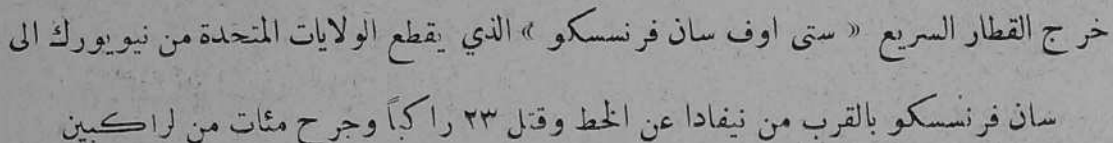 خرج القطار السريع « ستى اوف سان فرنسسكو » الذي يقطع الولايات المتحدة من نيويورك الى
سان فرنسسكو بالقرب من نيفادا عن الخط وقتل ٢٣ راكباً وجرح مئات من لراكبين